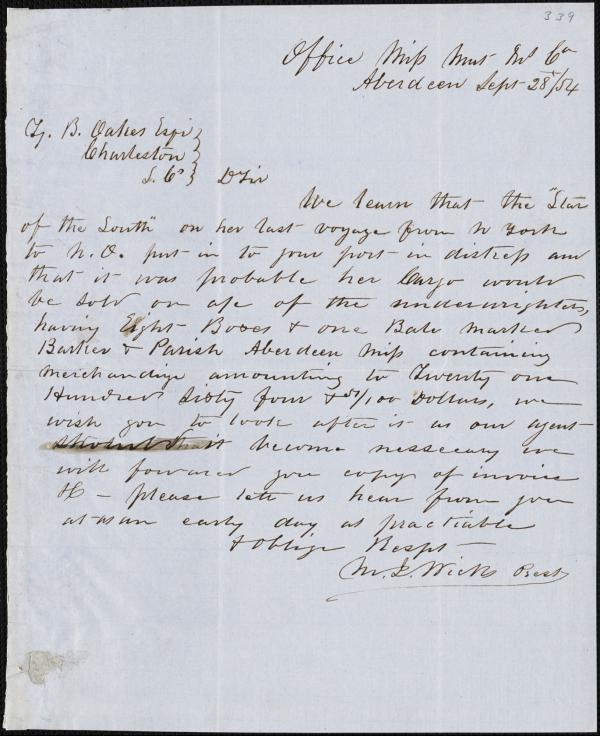 339
Office Miss Mut Ins Co
Aberdeen Sept 28th/54
Z. B. Oakes Esqr
Charleston
S. Ca D Sir
We learn that the "Star
of the South" on her last voyage from N York
to N.O. put in to your port in distress and
that it was probable her Cargo would
be sold on a/c of the underwrighters,
having Eight Boxes & one Bale marked
Barker & Parish Aberdeen Miss containing
merchandize amounting to Twenty one
Hundred Sixty four & /100 Dollars, we
wish you to look after it as our agent
it become nessecary we
will forward you copy of invoice
&C – please lett us hear from you
at as an early day as practiable
& Oblige Respt
M. L. Wicks Prest